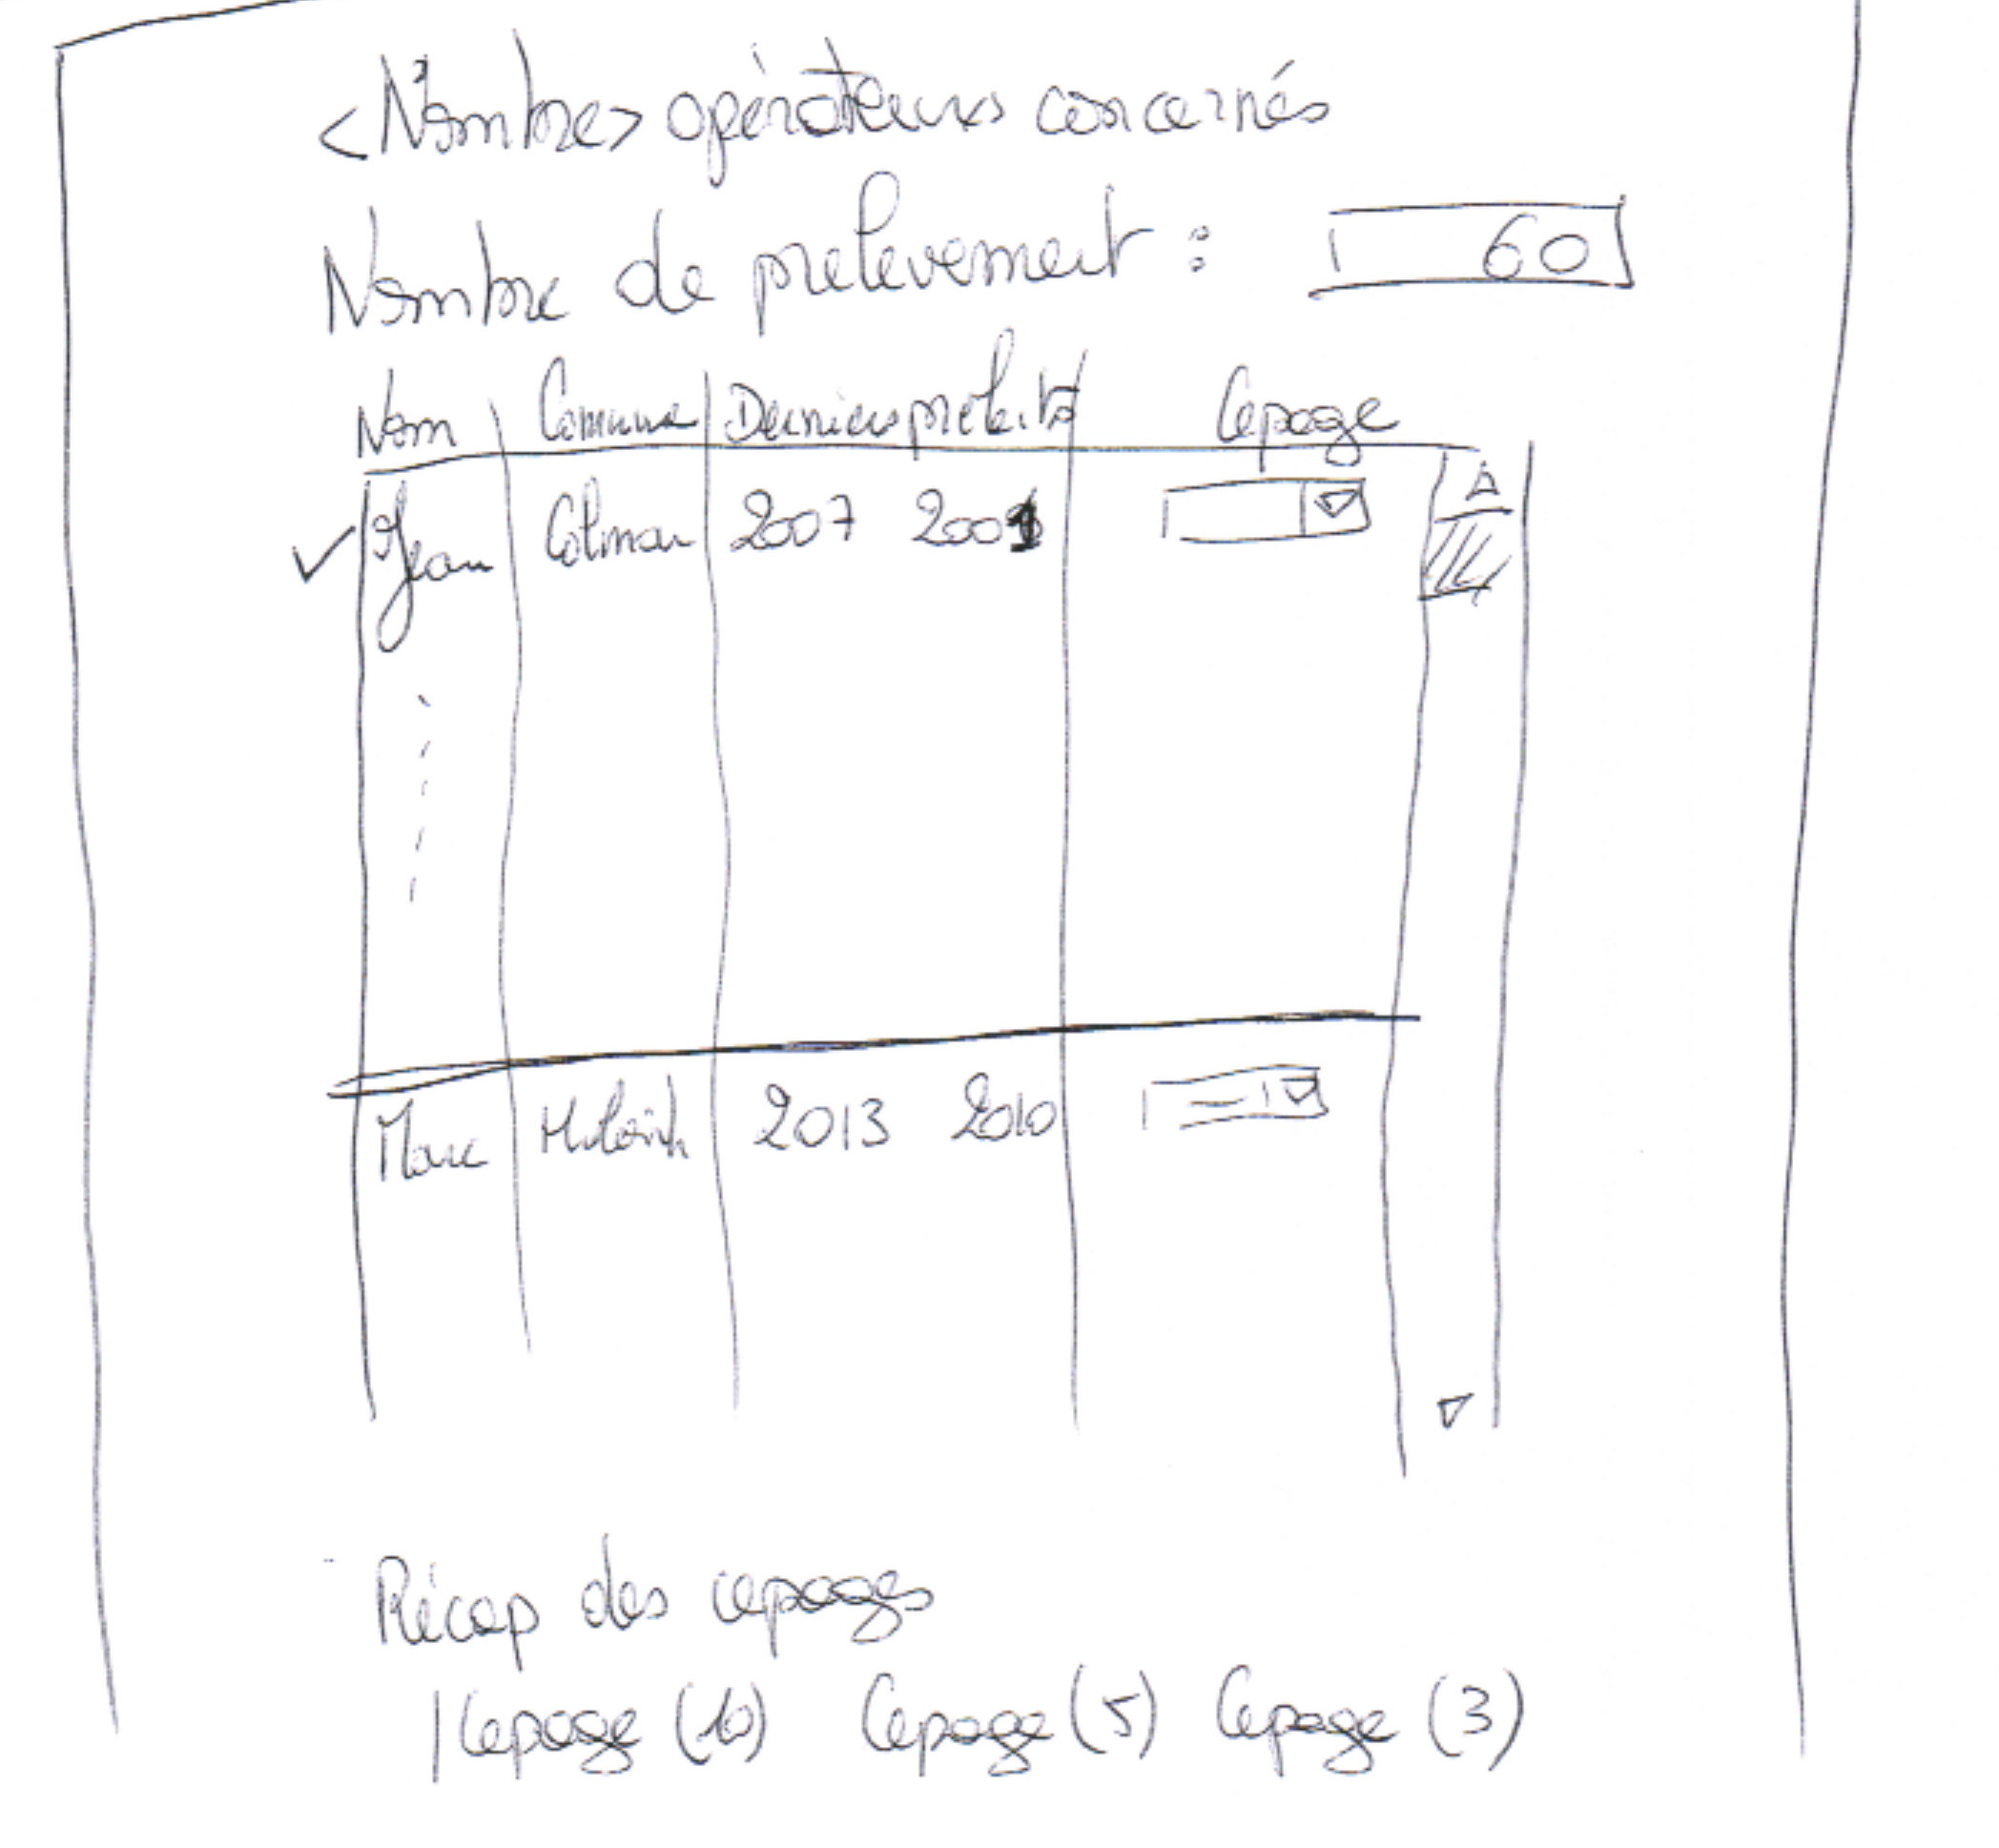 <Nombre> opérateurs concernés
Nombre de prelevement : 60
Nom Commune Derniers Cepage
Jean Colmar 2007 2001
Marc 2013 2010
Récap des cepages
Cepage (10) Cepage (5) Cepage (3)